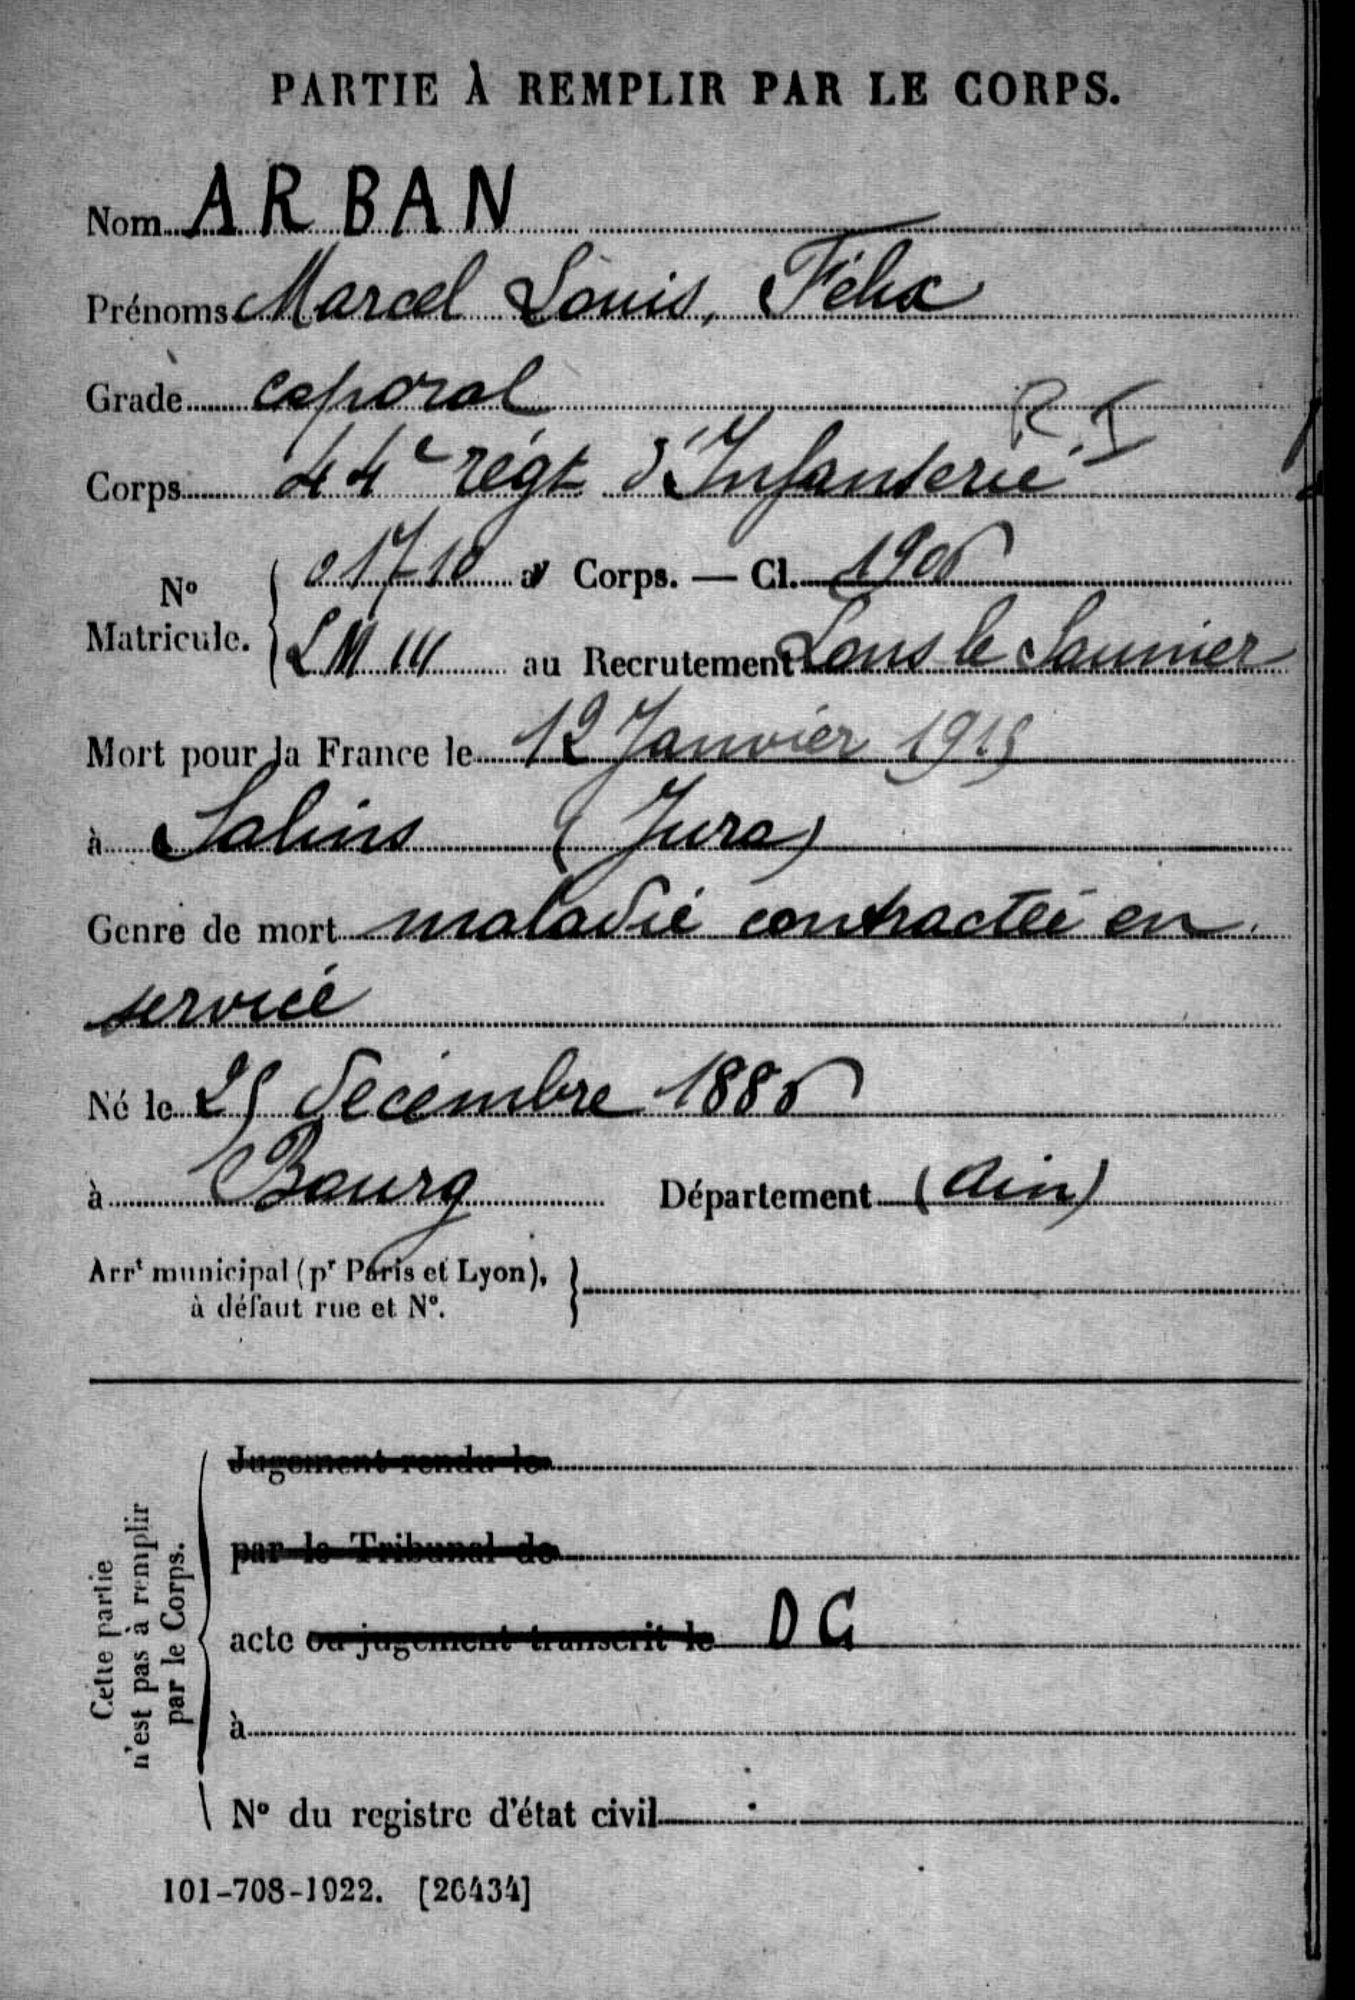 PARTIE À REMPLIR PAR LE CORPS.
Nom ARBAN
Prénoms Marcel Louis, Félix
Grade caporal
R.I
Corps 44e régt d'Infanterie
N° Matricule. 01710 au Corps. — Cl. 1906
LM 111 au Recrutement Lons le Saunier
Mort pour la France le 12 Janvier 1915
à Salins (Jura)
Genre de mort maladie contractée en
service
Né le 25 décembre 1886
à Bourg Département (Ain)
Arrt municipal (pr Paris et Lyon),
à défaut rue et N°.
Cette partie
n'est pas à remplir
par le Corps.
Jugement rendu le
par le Tribunal de
acte ou jugement transcrit le DG
à
N° du registre d'état civil
101-708-1922. [26434]